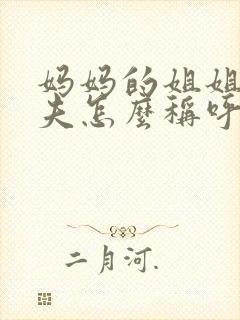 妈妈的姐姐
夫怎麼稱呼
二月河.